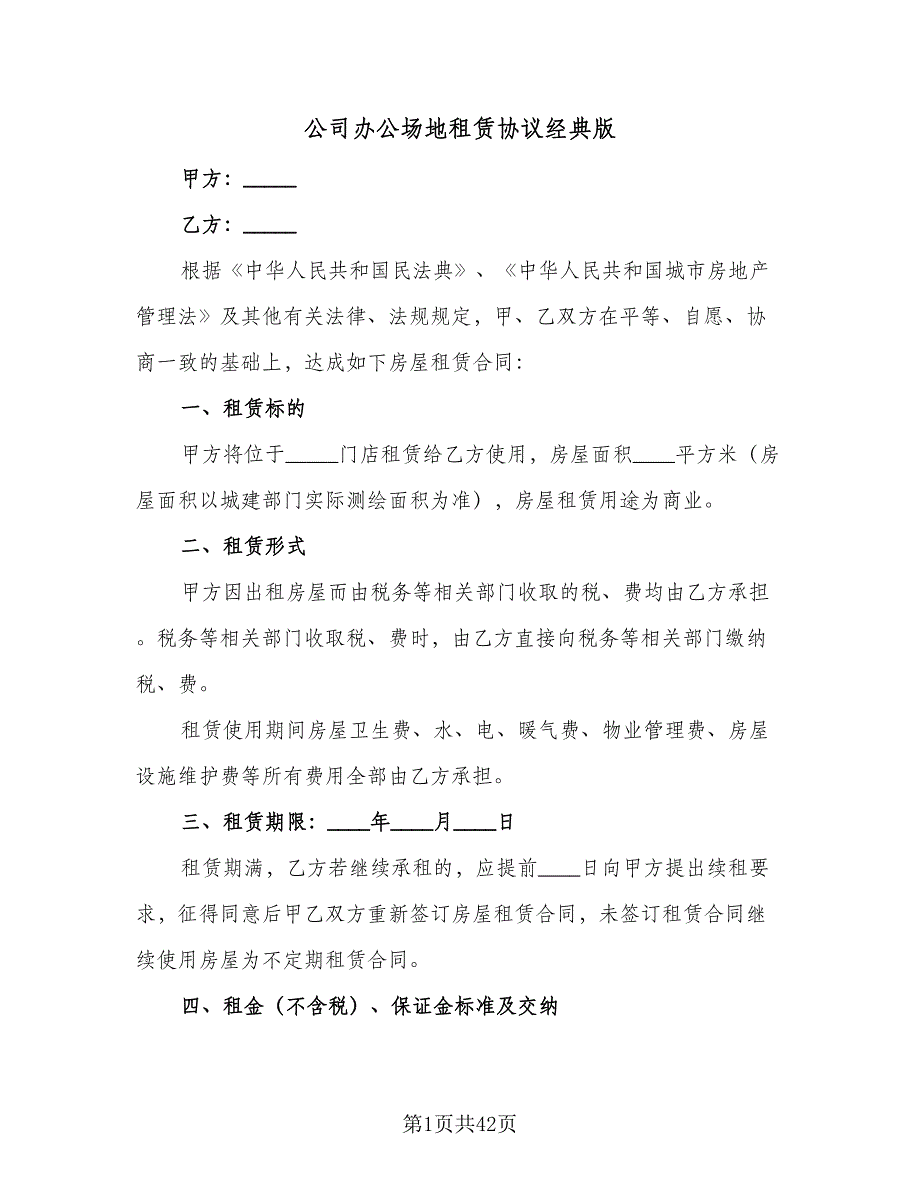 公司办公场地租赁协议经典版
甲方：_____
乙方：_____
根据《中华人民共和国民法典》、《中华人民共和国城市房地产
管理法》及其他有关法律、法规规定，甲、乙双方在平等、自愿、协
商一致的基础上，达成如下房屋租赁合同：
一、租赁标的
甲方将位于_____门店租赁给乙方使用，房屋面积____平方米（房
屋面积以城建部门实际测绘面积为准），房屋租赁用途为商业。
二、租赁形式
甲方因出租房屋而由税务等相关部门收取的税、费均由乙方承担
。税务等相关部门收取税、费时，由乙方直接向税务等相关部门缴纳
税、费。
租赁使用期间房屋卫生费、水、电、暖气费、物业管理费、房屋
设施维护费等所有费用全部由乙方承担。
三、租赁期限：____年____月____日
租赁期满，乙方若继续承租的，应提前____日向甲方提出续租要
求，征得同意后甲乙双方重新签订房屋租赁合同，未签订租赁合同继
续使用房屋为不定期租赁合同。
四、租金（不含税）、保证金标准及交纳
第1页共42页